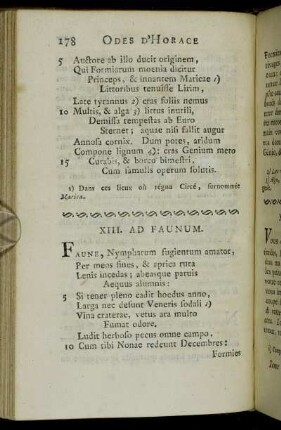 178 ODES D'HORACE
5 Auctore ab illo ducit originem,
Qui Formiarum moenia dicitur
Princeps, & innantem Maricae 1)
Littoribus tenuisse Lirim,
Late tyrannus 2) cras foliis nemus
10 Multis, & alga 3) littus inutili,
Demissa tempestas ab Euro
Sternet; aquae nisi fallit augur
Annosa cornix. Dum potes, aridum
Compone lignum 4): cras Genium mero
15 Curabis, & porco bimestri,
Cum famulis operum solutis.
1) Dans ces lieux où régna Circé, surnommée
Marica.
XIII. AD FAUNUM.
FAUNE, Nympharum fugientum amator,
Per meos fines, & aprica rura
Lenis incedas; abeasque parvis
Aequus alumnis:
5 Si tener pleno cadit hoedus anno,
Larga nec desunt Veneris sodali 1)
Vina craterae, vetus ara multo
Fumat odore,
Ludit herboso pecus omne campo,
10 Cum tibi Nonae redeunt Decembres:
Formies